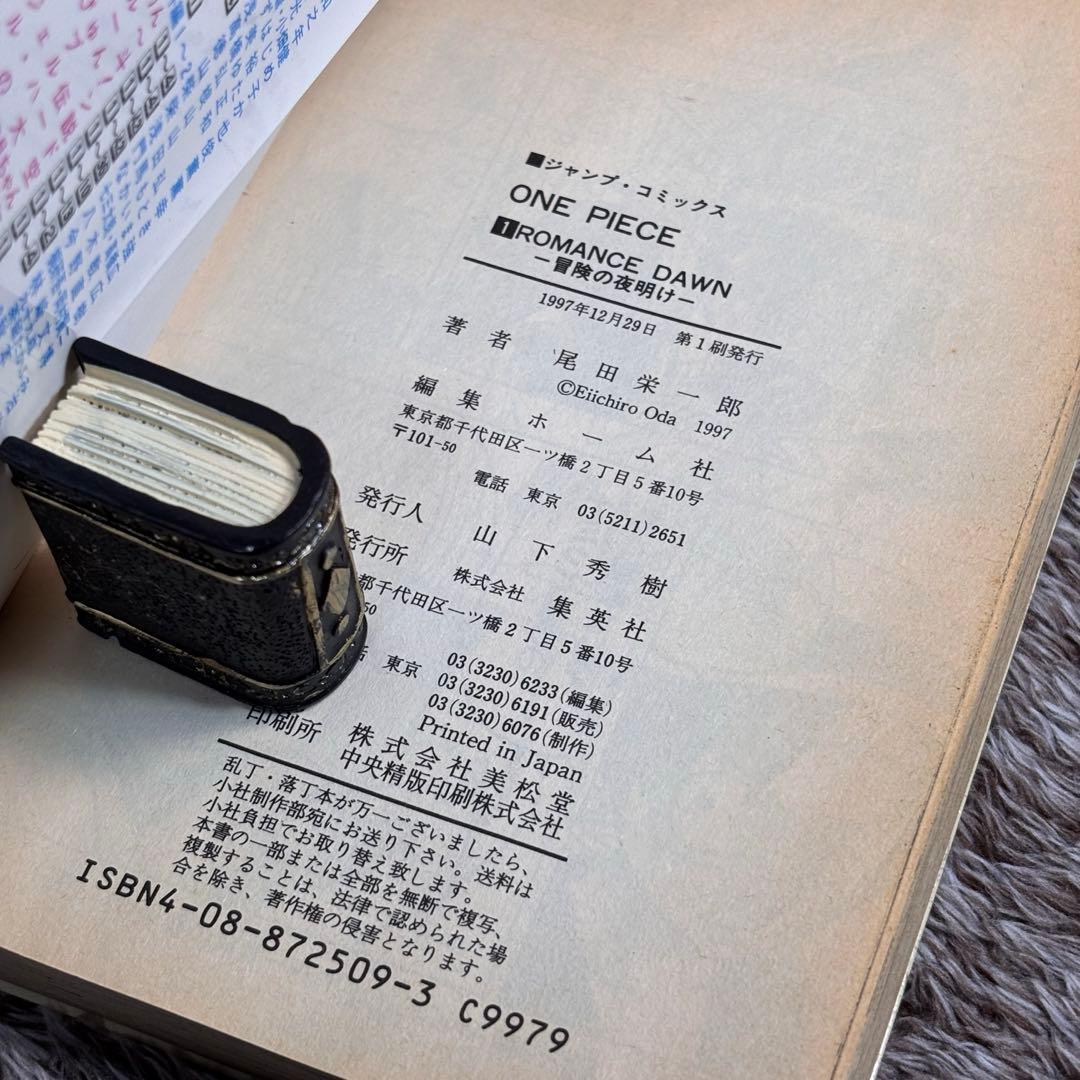 ■ジャンプ・コミックス
ONE PIECE
1 ROMANCE DAWN
ー冒険の夜明けー
1997年12月29日 第1刷発行
著者 尾田栄一郎
©Eiichiro Oda 1997
編集 ホーム社
東京都千代田区一ツ橋2丁目5番10号
〒101-50
電話 東京 03(5211)2651
発行人 山下秀樹
発行所 株式会社 集英社
都千代田区一ツ橋2丁目5番10号
50
東京 03(3230)6233(編集)
03(3230)6191(販売)
03(3230)6076(制作)
Printed in Japan
印刷所 株式会社美松堂
中央精版印刷株式会社
乱丁・落丁本が万一ございましたら、
小社制作部宛にお送り下さい。送料は
小社負担でお取り替え致します。
本書の一部または全部を無断で複写、
複製することは、法律で認められた場
合を除き、著作権の侵害となります。
ISBN4-08-872509-3 C9979